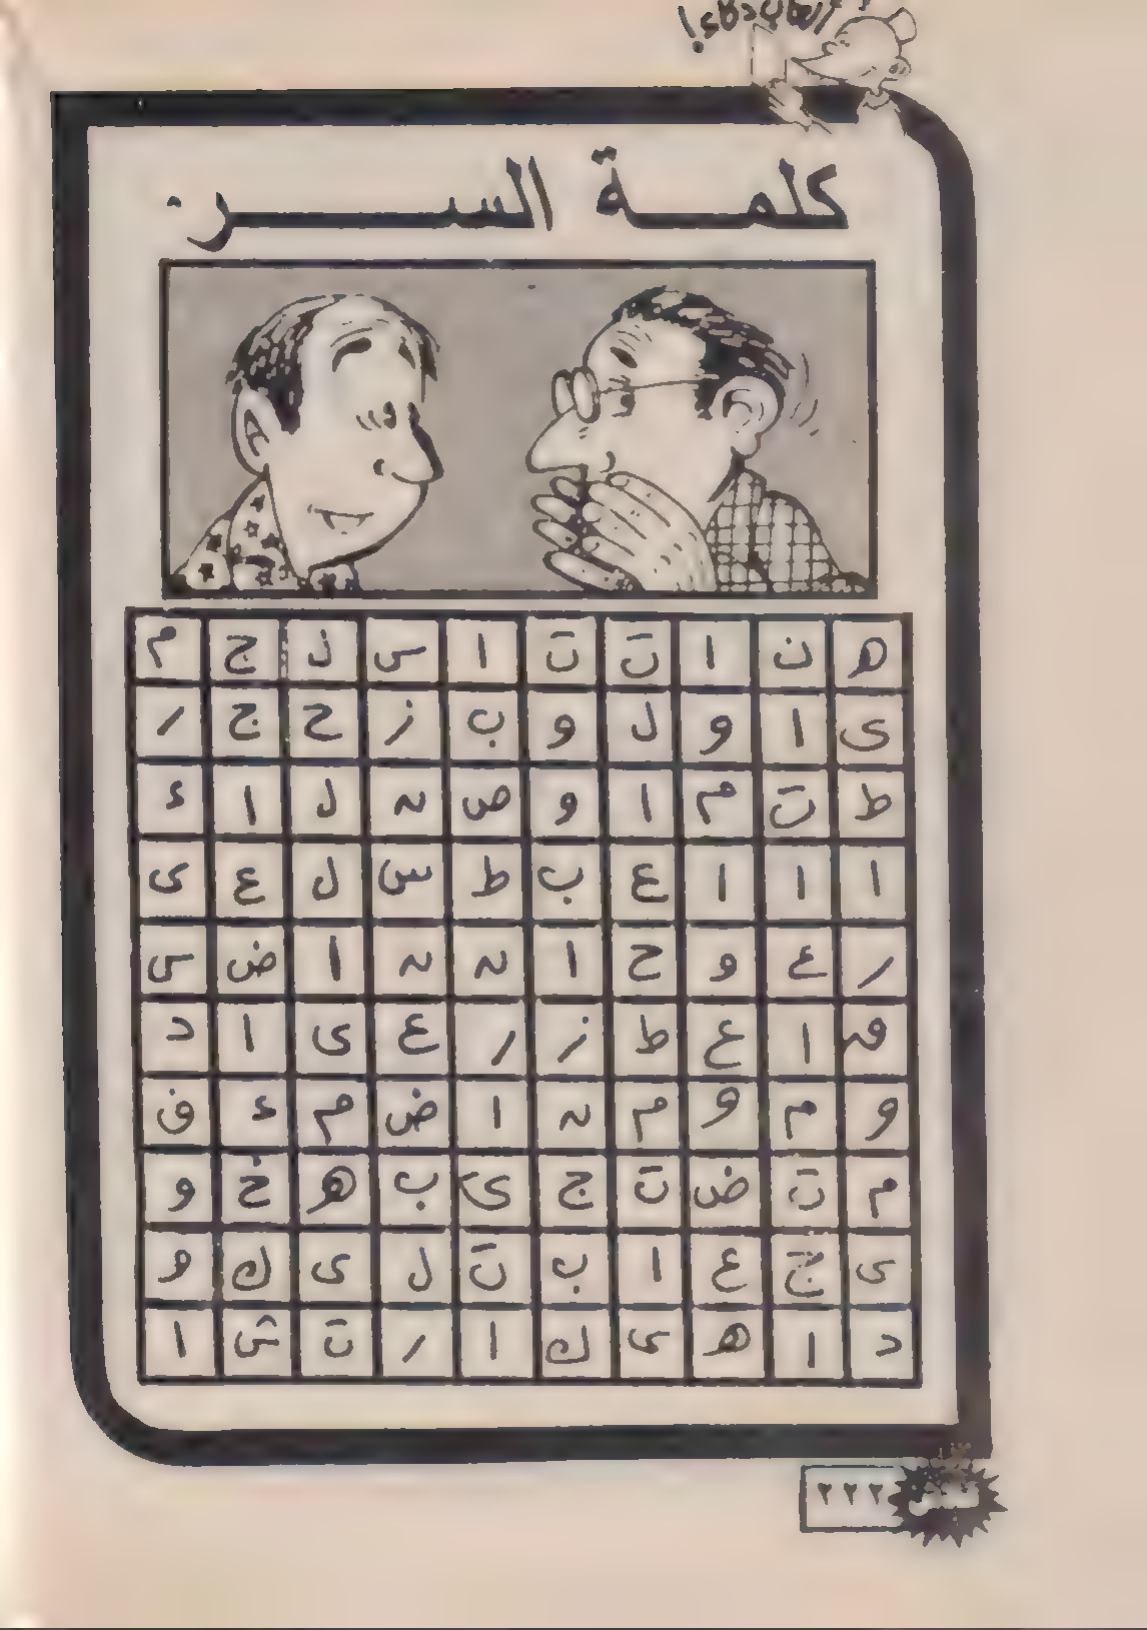 ألعاب ذكاء!
كلمة السر
ه ن ا ت ت ا س ل ج م
ى ا و ل و ب ز ح ج ر
ط ت م ا و ص ن ل ا ء
ا ا ا ع ب ط س ل ع ى
ر ع و ح ا ن ن ا ض س
ق ا ع ط ز ر ع ى ا د
و م و م ن ا ض م ء ف
م ت ض ت ج ى ب ه خ و
ى ج ع ا ب ت ل ى ك و
د ا ه ى ك ا ر ت ش ا
٢٢٢